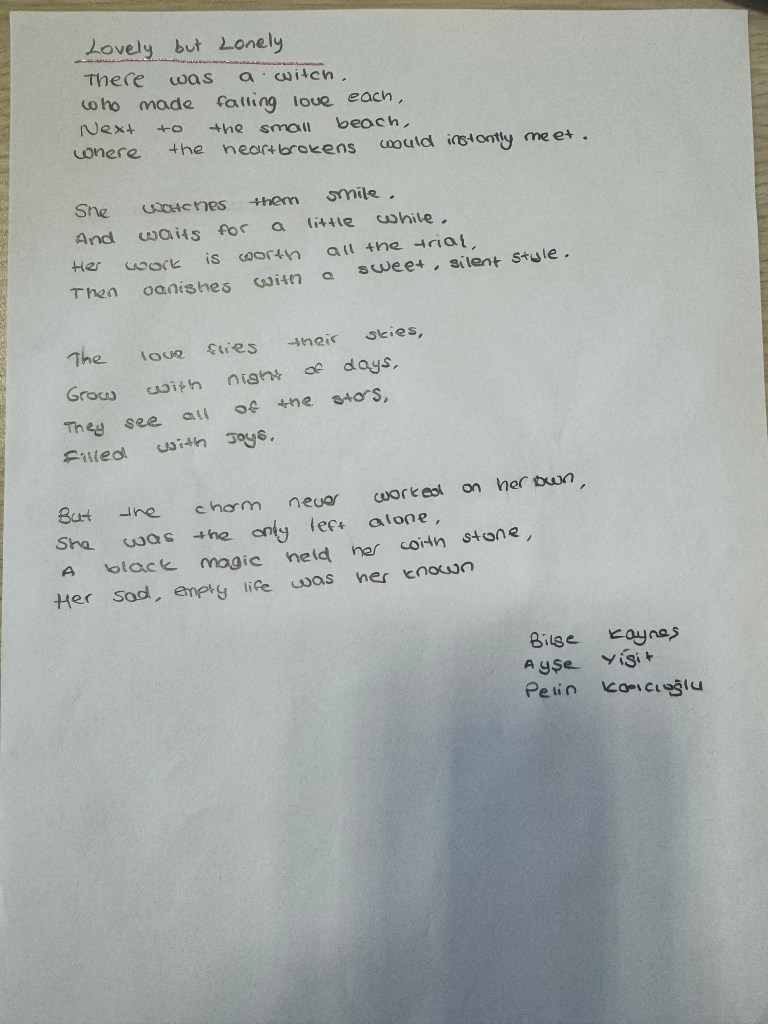 Lovely but Lonely
There was a witch.
who made falling love each,
Next to the small beach,
where the heartbrokens would instantly meet.
She watches them smile.
And waits for a little while.
Her work is worth all the trial,
Then vanishes with a sweet, silent style.
The love flies their skies,
Grow with night of days,
They see all of the stars,
Filled with Joys.
But the charm never worked on her own,
She was the only left alone,
A black magic held her with stone,
Her sad, empty life was her known
Bilge Kaynes
Ayşe Yiğit
Pelin